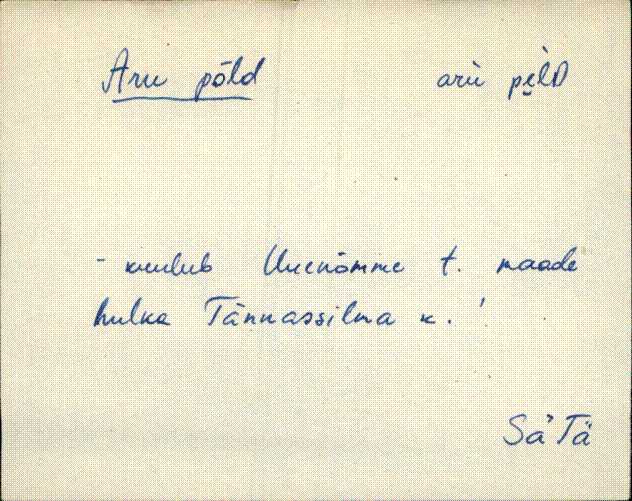 Aru põld arù pe̮l̀D
- kuulub Uuenõmme t. maade
hulka Tännassilma k.!
Sa' Tä